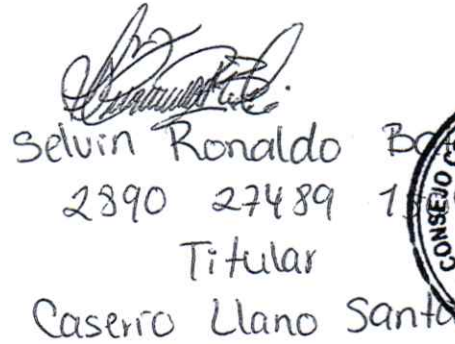 Selvin Ronaldo
2890 27489
Titular
Caserio Llano Santa
CONSEJO